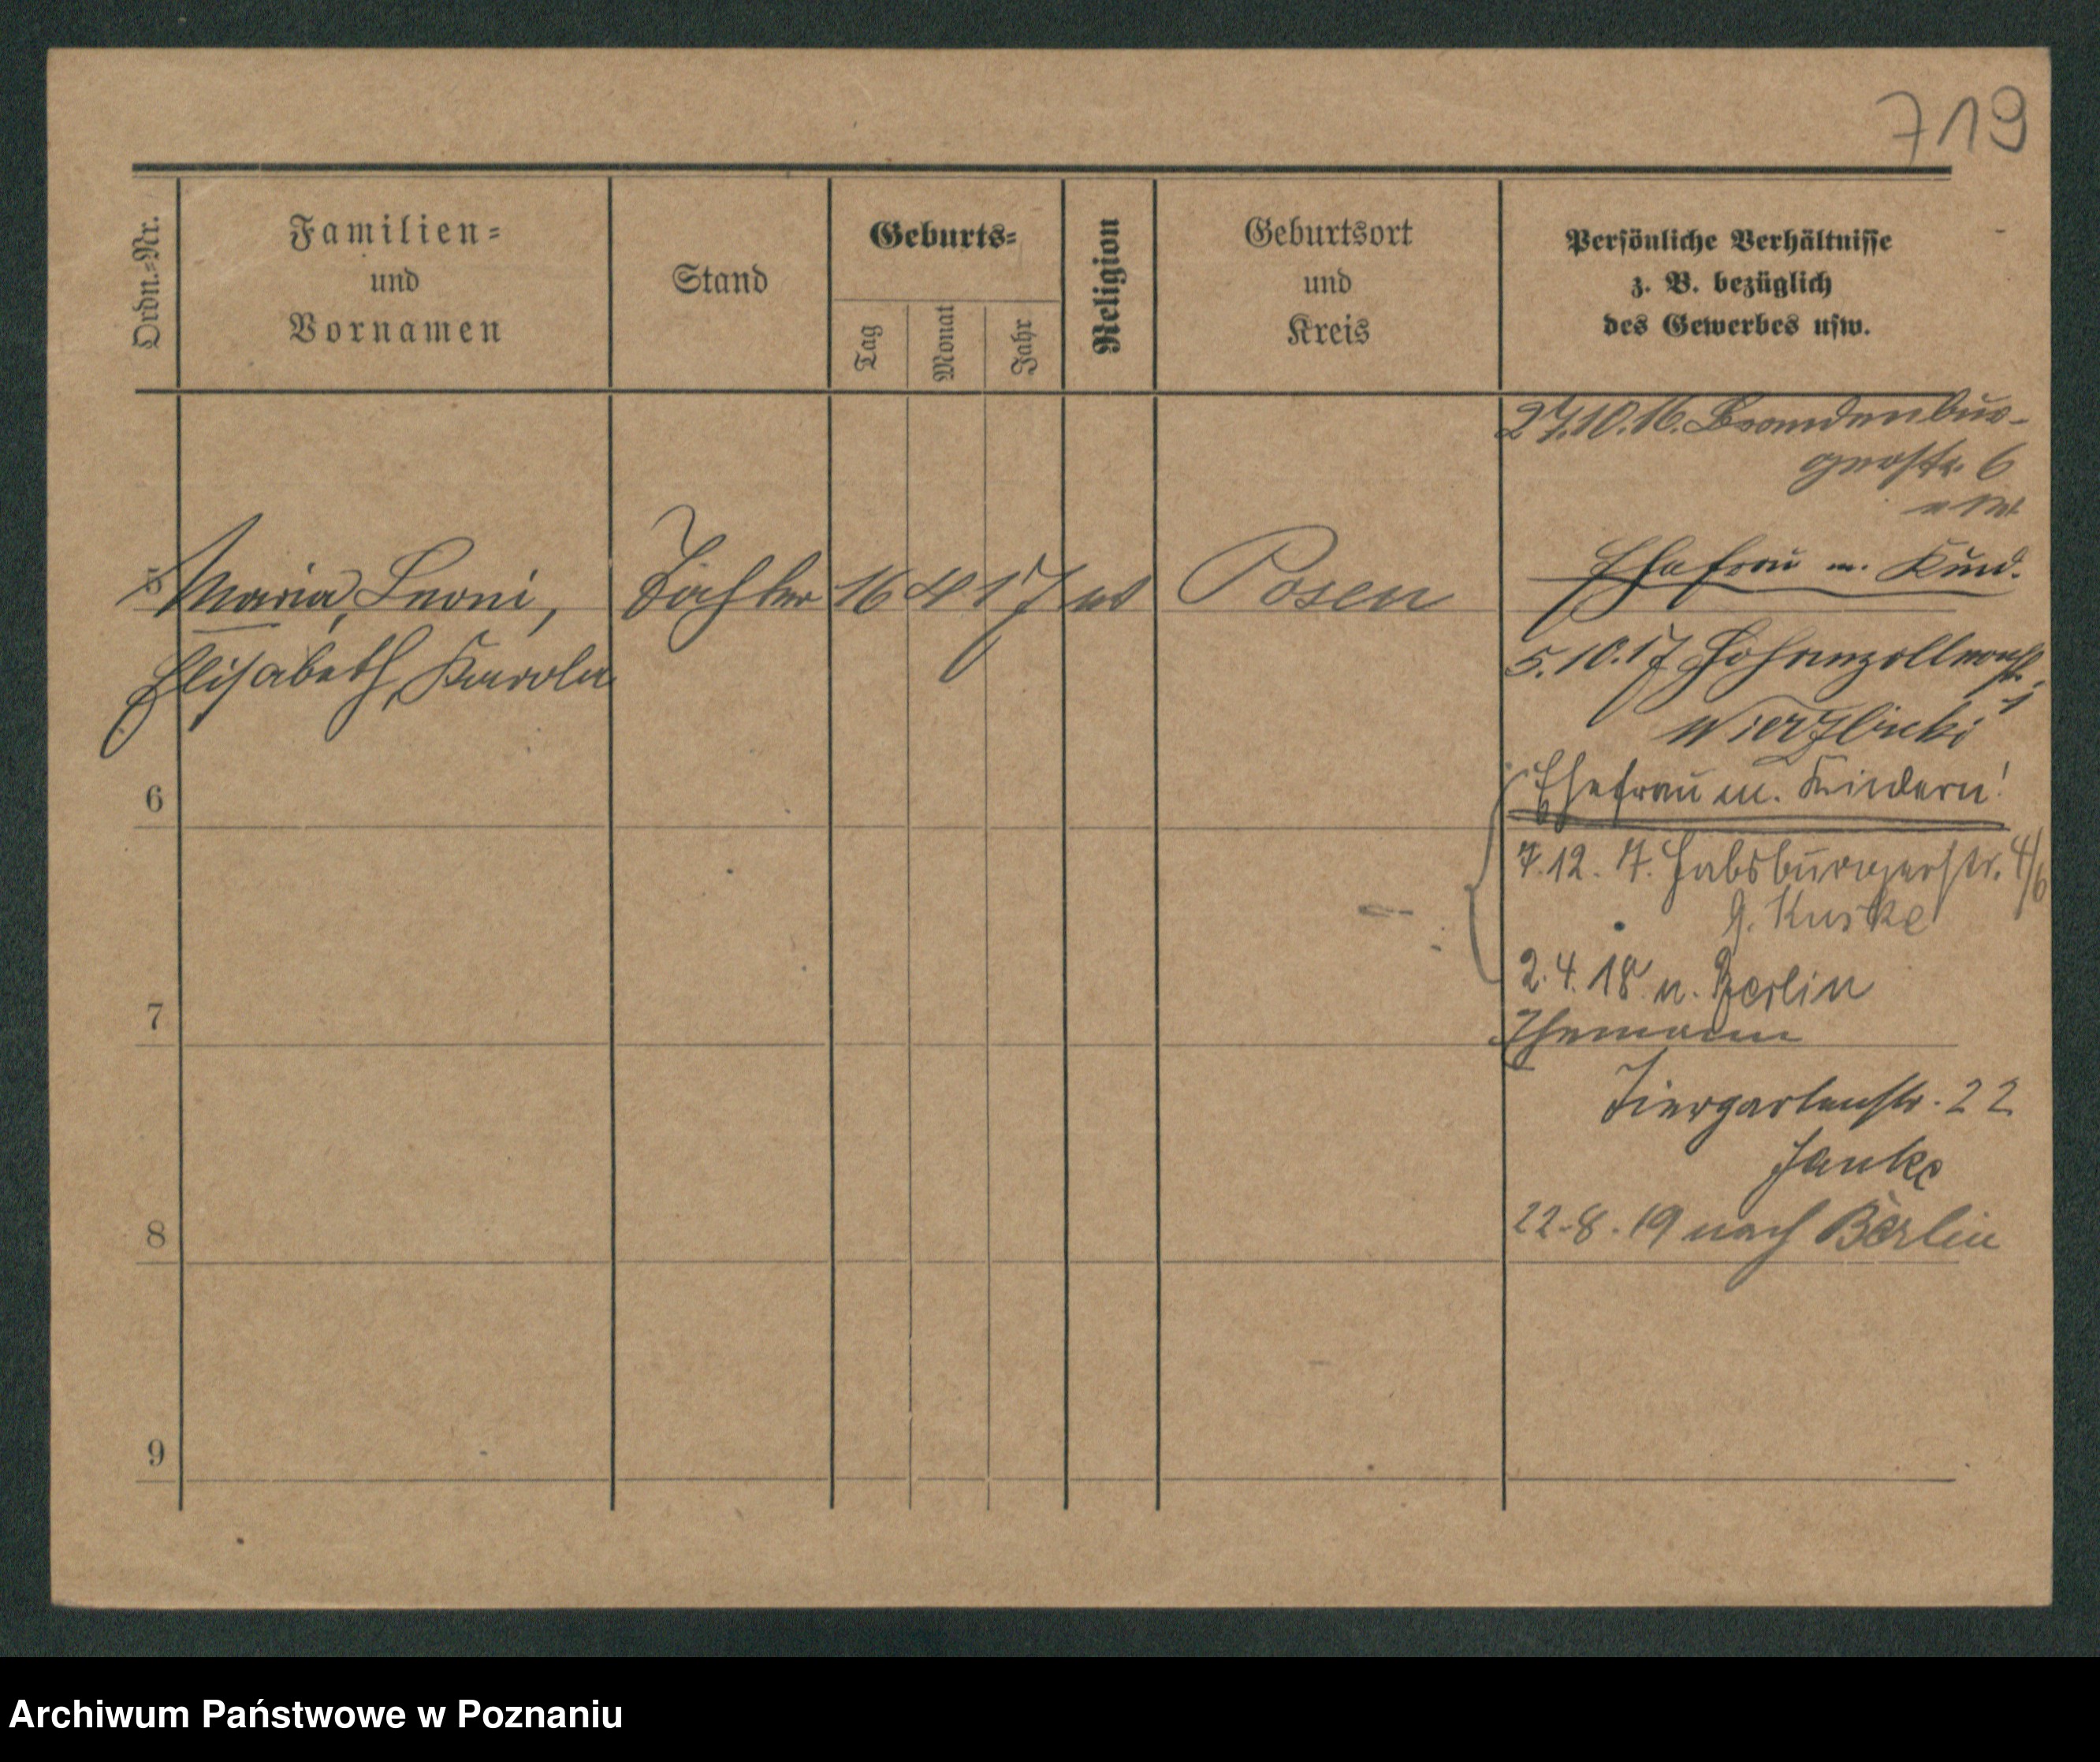 719
Ordn.-Nr.
Familien-
und
Vornamen
Stand
Geburts-
Tag
Monat
Jahr
Religion
Geburtsort
und
Kreis
Persönliche Verhältnisse
z. B. bezüglich
des Gewerbes usw.
27.10.16. Brandenbur-
gerstr. 6
Ehefrau m. Kind.
5 Maria, Leoni, Tochter 16 4 17 Posen
Elisabeth, Karola
5.10.17 Hohenzollernstr.
1
Wierzbicki
6
Ehefrau m. Kindern!
7.12. 17. Habsburgerstr. 4/6
G. Kuske
2.4.18 n. Berlin
7
Ehemann
Tiergartenstr. 22
Janke
8
22.8.19 nach Berlin
9
Archiwum Państwowe w Poznaniu